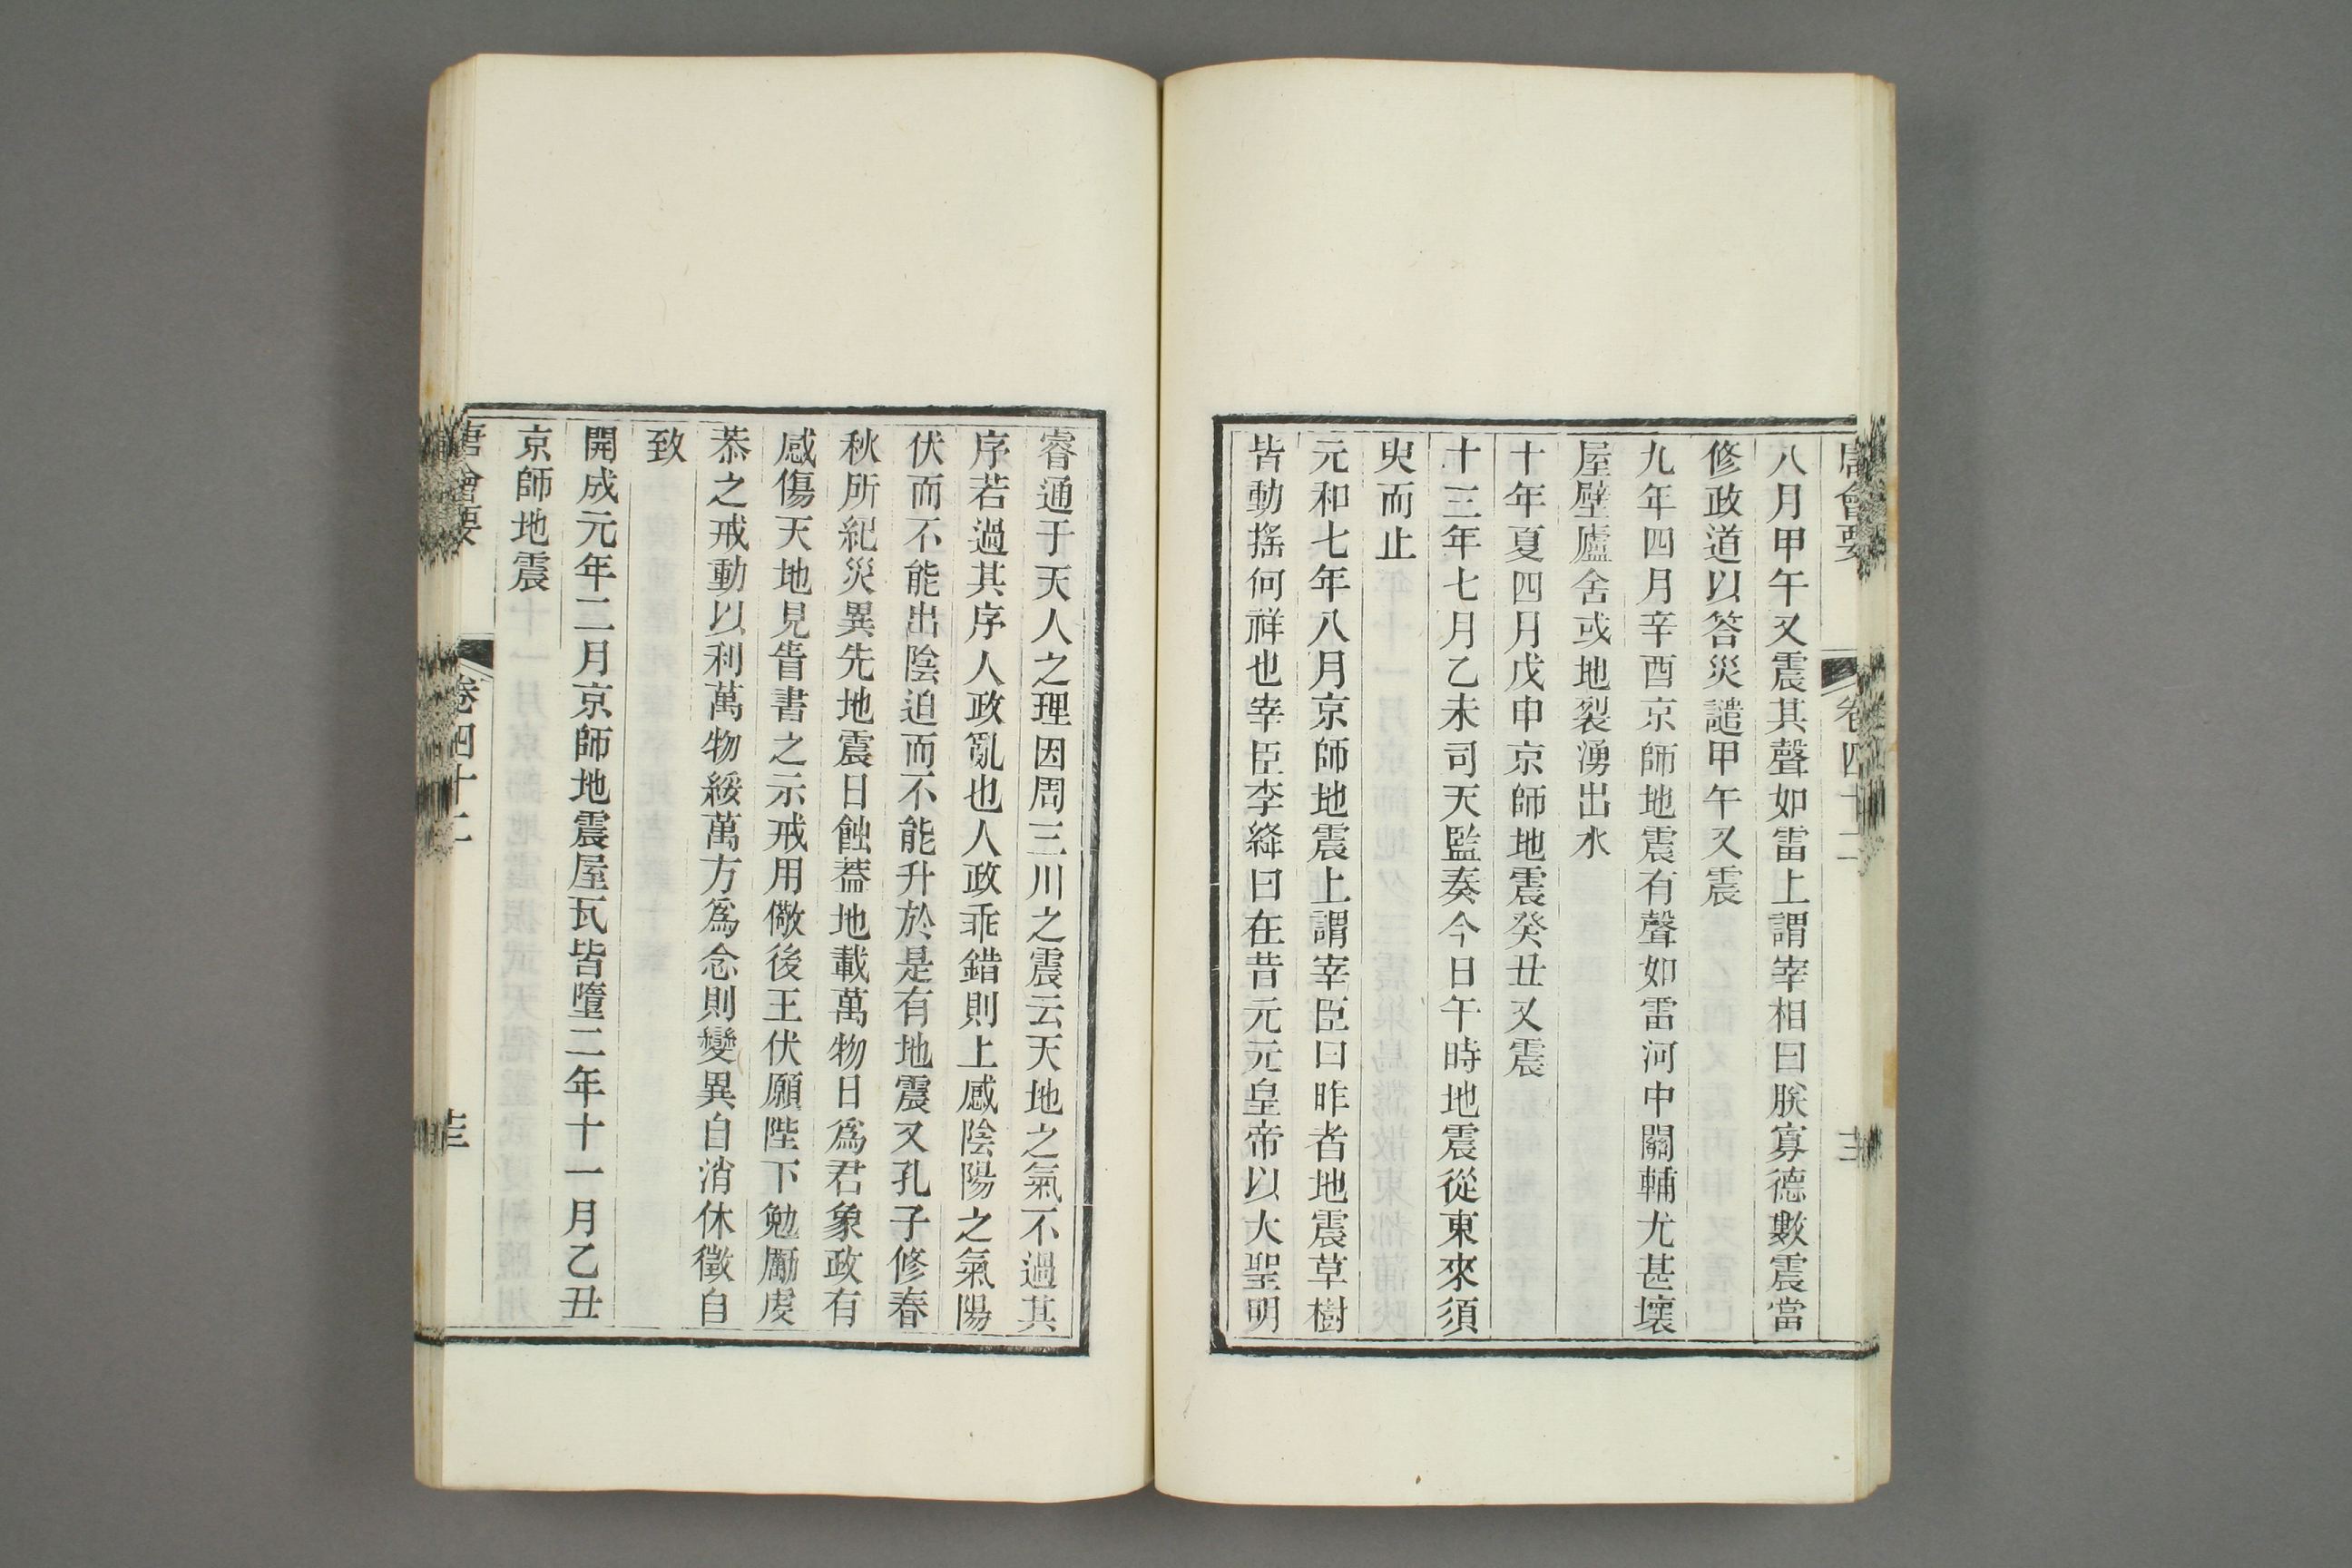 唐會要 卷四十二
八月甲午又震其聲如雷上謂宰相曰朕寡德數震當
修政道以答災譴甲午又震
九年四月辛酉京師地震有聲如雷河中關輔尤甚壞
屋壁廬舍或地裂湧出水
十年夏四月戊申京師地震癸丑又震
十三年七月乙未司天監奏今日午時地震從東來須
臾而止
元和七年八月京師地震上謂宰臣曰昨者地震草樹
皆動搖何祥也宰臣李絳曰在昔元元皇帝以大聖明
睿通于天人之理因周三川之震云天地之氣不過其
序若過其序人政亂也人政乖錯則上感陰陽之氣陽
伏而不能出陰迫而不能升於是有地震又孔子修春
秋所紀災異先地震日蝕蓋地載萬物日爲君象政有
感傷天地見眚書之示戒用儆後王伏願陛下勉勵虔
恭之戒動以利萬物綏萬方爲念則變異自消休徵自
致
開成元年二月京師地震屋瓦皆墮二年十一月乙丑
京師地震
唐會要 卷四十二